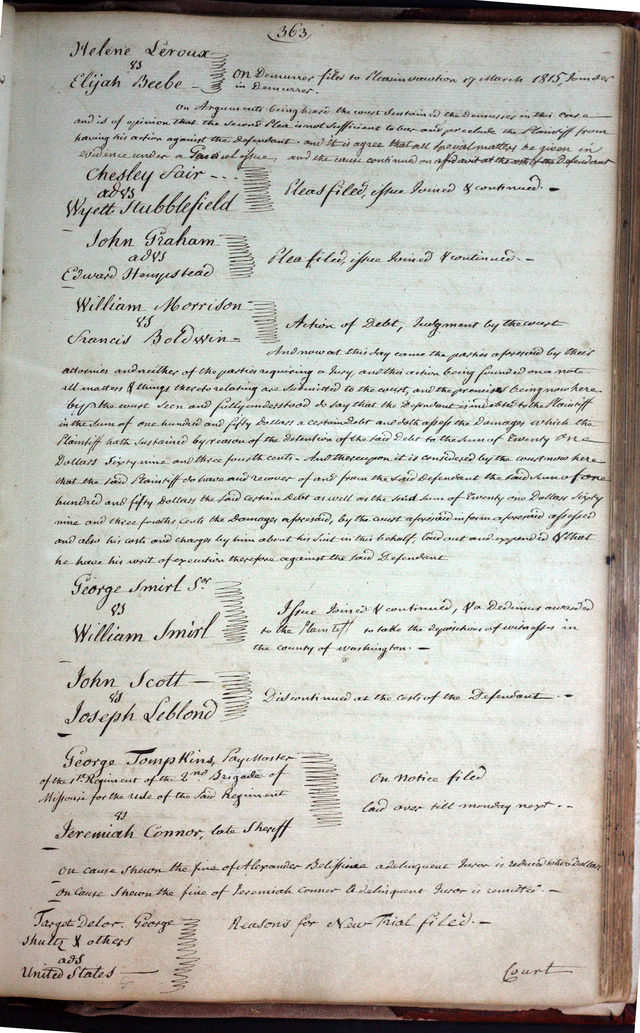 363
Helene Leroux
vs
Elijah Beebe
On Demurrer filed to Pleas in vacation 17 March 1815, Joinder
in Demurrer.
On Arguments being heard the court sustained the demurrer in this case
and is of opinion that the Second Plea is not sufficient to bar and preclude the Plaintiff from
having his action against the Defendant and it is agree that all special matters be given in
evidence under a issue, and the cause continued on affidavit at the costs of the Defendant
Chesley Fair
advs
Wyett Stubblefield
Pleas filed, issue Joined & continued. -
John Graham
advs
Edward Hempstead
Plea filed, issue Joined & continued. -
William Morrison
vs
Francis Boldwin
Action of Debt, Judgment by the court
And now at this day came the parties aforesaid by their
attornies and neither of the parties requiring a Jury, and this action being founded on a note
all matters & things thereto relating are submitted to the court, and the premises being now here
by the court seen and fully understood do say that the Defendant is indebted to the Plaintiff
in the sum of one hundred and fifty Dollars a certain debt and doth assess the Damages which the
Plaintiff hath sustained by reason of the detention of the said Debt to the sum of Twenty one
Dollars Sixty nine and three fourth cents - And thereupon it is considered by the court now here
that the said Plaintiff do have and recover of and from the said Defendant the said sum of one
hundred and fifty Dollars the said certain debt as well as the said sum of Twenty one Dollars Sixty
nine and three fourths Cents the Damages aforesaid, by the court aforesaid in form aforesaid assessed
and also his costs and charges by him about his suit in this behalf laid out and expended & that
he have his writ of execution therefore against the said Defendant
George Smirl Sr
vs
William Smirl
Issue Joined & continued, & a Dedimus awarded
to the Plaintiff to take the depositions of witnesses in
the county of Washington. -
John Scott
vs
Joseph Leblond
Discontinued at the costs of the Defendant. -
George Tompkins, Pay Master
of the 1st Regiment of the 2nd Brigade of
Missouri for the use of the said Regiment
vs
Jeremiah Connor, late Sheriff
On Notice filed
laid over till monday next. -
On cause shewn the fine of Alexander a delinquent Juror is reduced to two Dollars
On cause shewn the fine of Jeremiah Connor a delinquent Juror is remitted. -
Target Delor. George
Shultz & others
ads
United States
Reasons for New Trial filed. -
Court